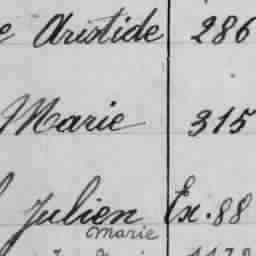 e Aristide 286
Marie 315
Julien Ex. 88
marie